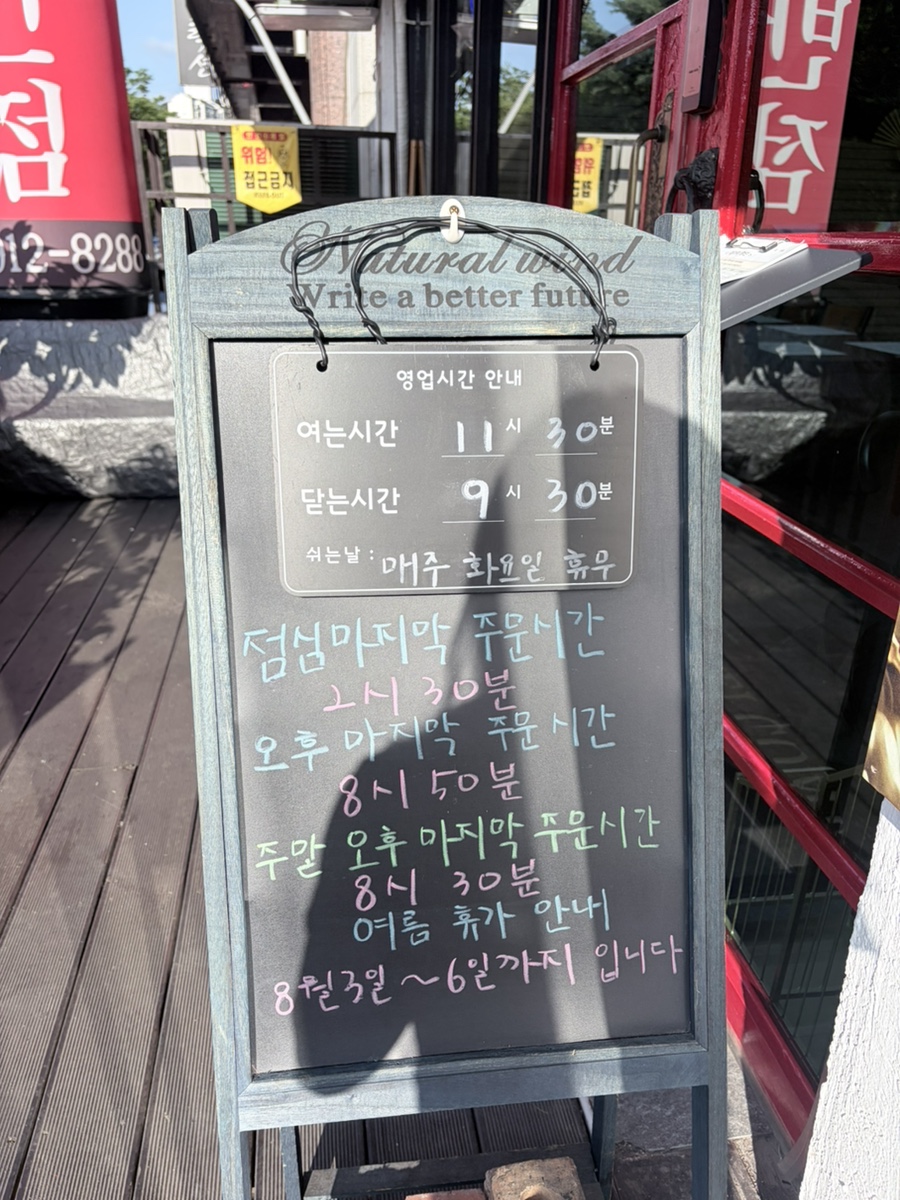 점
012-8288
위험!
접근금지
반점
Natural wind
Write a better future
영업시간 안내
여는시간 11시 30분
닫는시간 9시 30분
쉬는날 : 매주 화요일 휴무
점심마지막 주문시간
2시 30분
오후 마지막 주문시간
8시 50분
주말 오후 마지막 주문시간
8시 30분
여름 휴가 안내
8월3일 ~ 6일까지 입니다